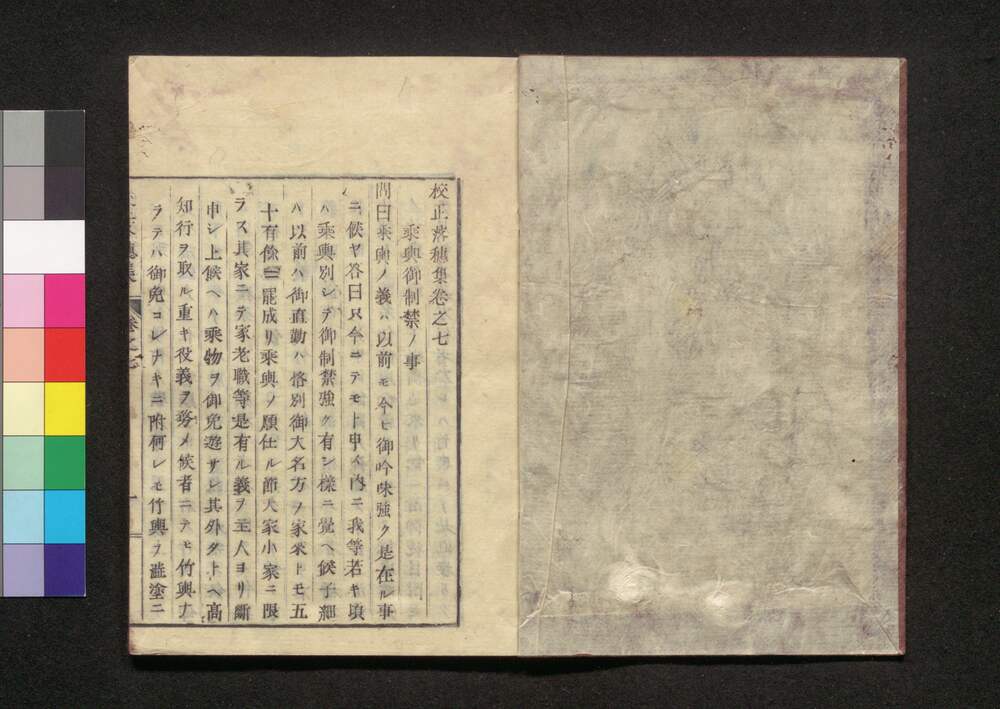 校正落穗集卷之七
乘輿御制禁ノ事
問曰乘輿ノ義ハ以前モ今モ御吟味強ク是在ル事
ニ候ヤ答曰只今ニテモト申ス內ニ我等若キ頃
ハ乘輿別シテ御制禁強ク有シ樣ニ覺ヘ候子細
ハ以前ハ御直勤ハ格別御大名方ノ家來トモ五
十有餘ニ罷成リ乘輿ノ願仕ル節大家小家ニ限
ラス其家ニテ家老職等是有ル義ヲ主人ヨリ斷
申シ上候ヘハ乘物ヲ御免遊サレ其外タトヘ高
知行ヲ取ル重キ役義ヲ務メ候者ニテモ竹輿ナ
ラテハ御免コレナキニ附何レモ竹輿ヲ澁塗ニ
卷之七